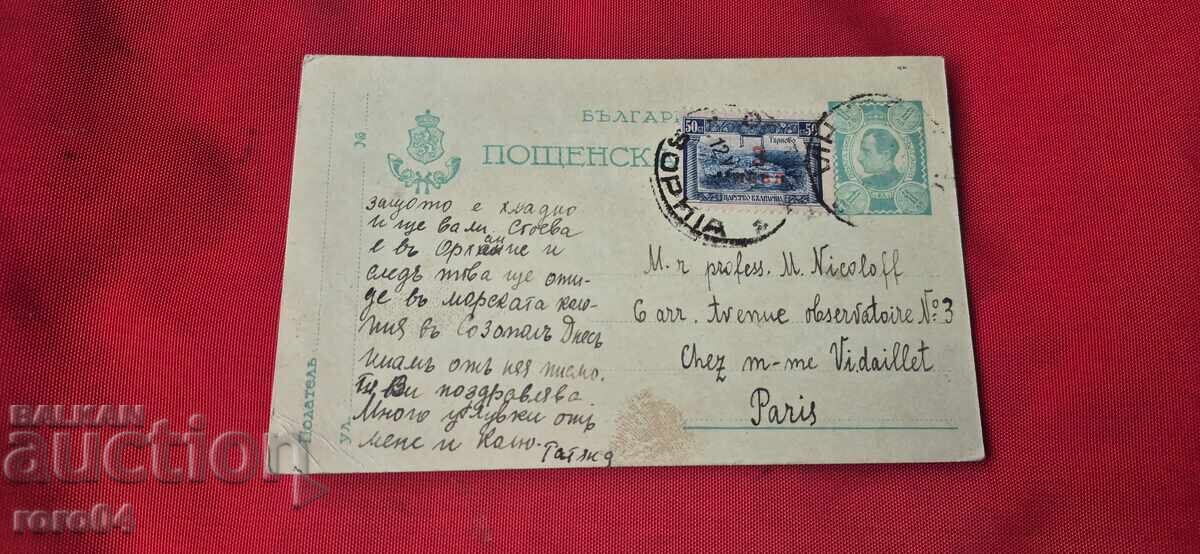 БЪЛГАРИ
ПОЩЕНСК
50 ст. 50
Търново
ЦАРСТВО БЪЛГАРИЯ
SOPHIA
№
Податель
ул.
защото е хладно
и ще вали. Стоева
е въ Орхание и
следъ това ще оти-
де въ морската коло-
ния въ Созополъ Днесъ
имамъ отъ нея писмо.
Тя Ви поздравлява.
Много целувки отъ
мене и
M.r profess. M. Nicoloff
6 arr. Avenue observatoire No: 3
Chez m-me Vidaillet
Paris
BALKAN
auction
roro04